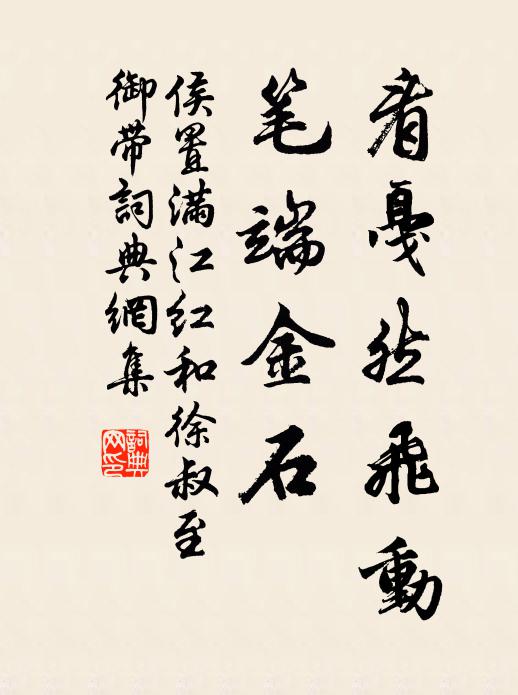 看戛然飛動
笔端金石
侯置滿江紅和徐叔至
御帶詞典網集
詞典网印